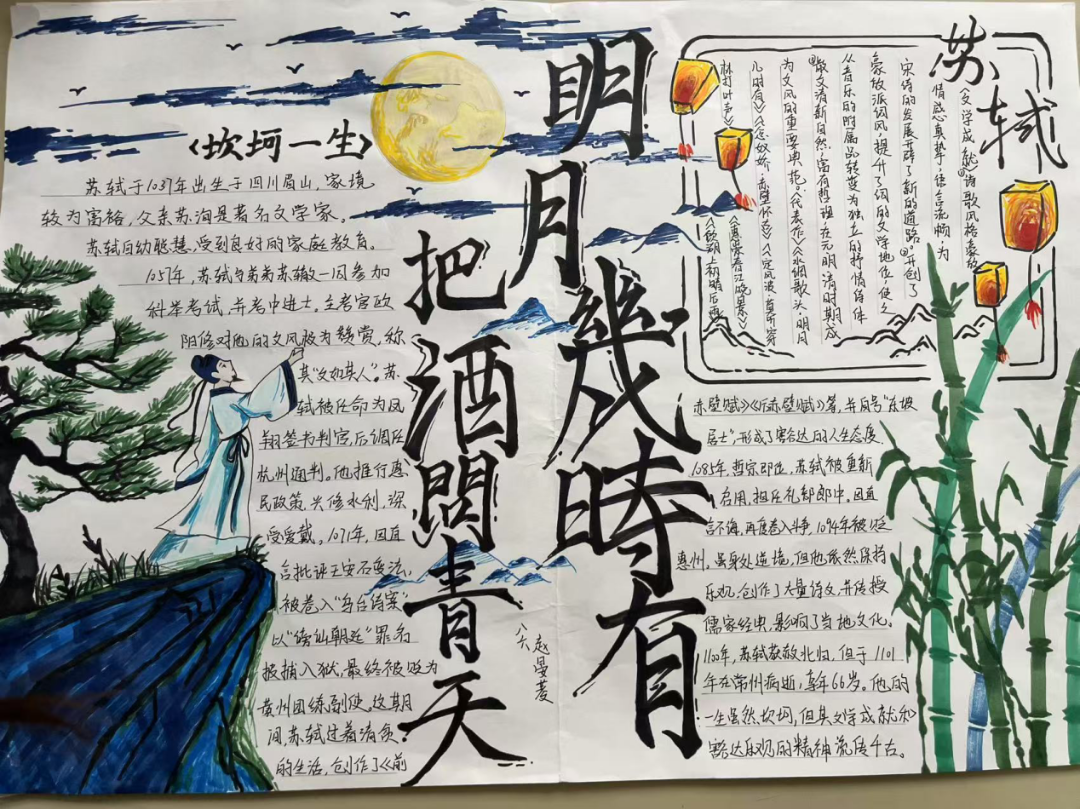 明月幾時有
把酒問青天
《坎坷一生》
苏轼于1037年出生于四川眉山,家境
较为富裕,父亲苏洵是著名文学家。
苏轼自幼聪慧,受到良好的家庭教育。
1057年,苏轼与弟弟苏辙一同参加
科举考试,并考中进士。主考官欧
阳修对他的文风极为赞赏,称
其"文如其人"。苏
轼被任命为凤
翔签书判官,后调任
杭州通判。他推行惠
民政策,兴修水利,深
受爱戴。1071年,因直
言批评王安石变法,
被卷入"乌台诗案"
以"谤讪朝廷"罪名
被捕入狱,最终被贬为
黄州团练副使,这期
间苏轼过着清贫
的生活,创作了《前
赤壁赋》《后赤壁赋》等,并自号"东坡
居士",形成了豁达的人生态度
1085年,哲宗即位,苏轼被重新
启用,担任礼部郎中。因直
言不讳,再度卷入斗争,1094年被贬
惠州,虽身处逆境,但他依然保持
乐观,创作了大量诗文,并传授
儒家经典,影响了当地文化。
1100年,苏轼获赦北归,但于1101
年在常州病逝,享年66岁。他的
一生虽然坎坷,但其文学成就和
豁达乐观的精神流传千古。
苏轼
《文学成就》诗歌风格豪放
情感真挚,语言流畅,为
宋诗的发展开辟了新的道路。开创了
豪放派词风,提升了词的文学地位,使之
从音乐的附属品转变为独立的抒情诗体
散文清新自然,富有哲理,在元明清时期成
为文风的重要典范。代表作《水调歌头·明月
几时有》《念奴娇·赤壁怀古》《定风波·莫听穿
林打叶声》
《惠崇春江晚景》
《饮湖上初晴后雨》
赵曼菱